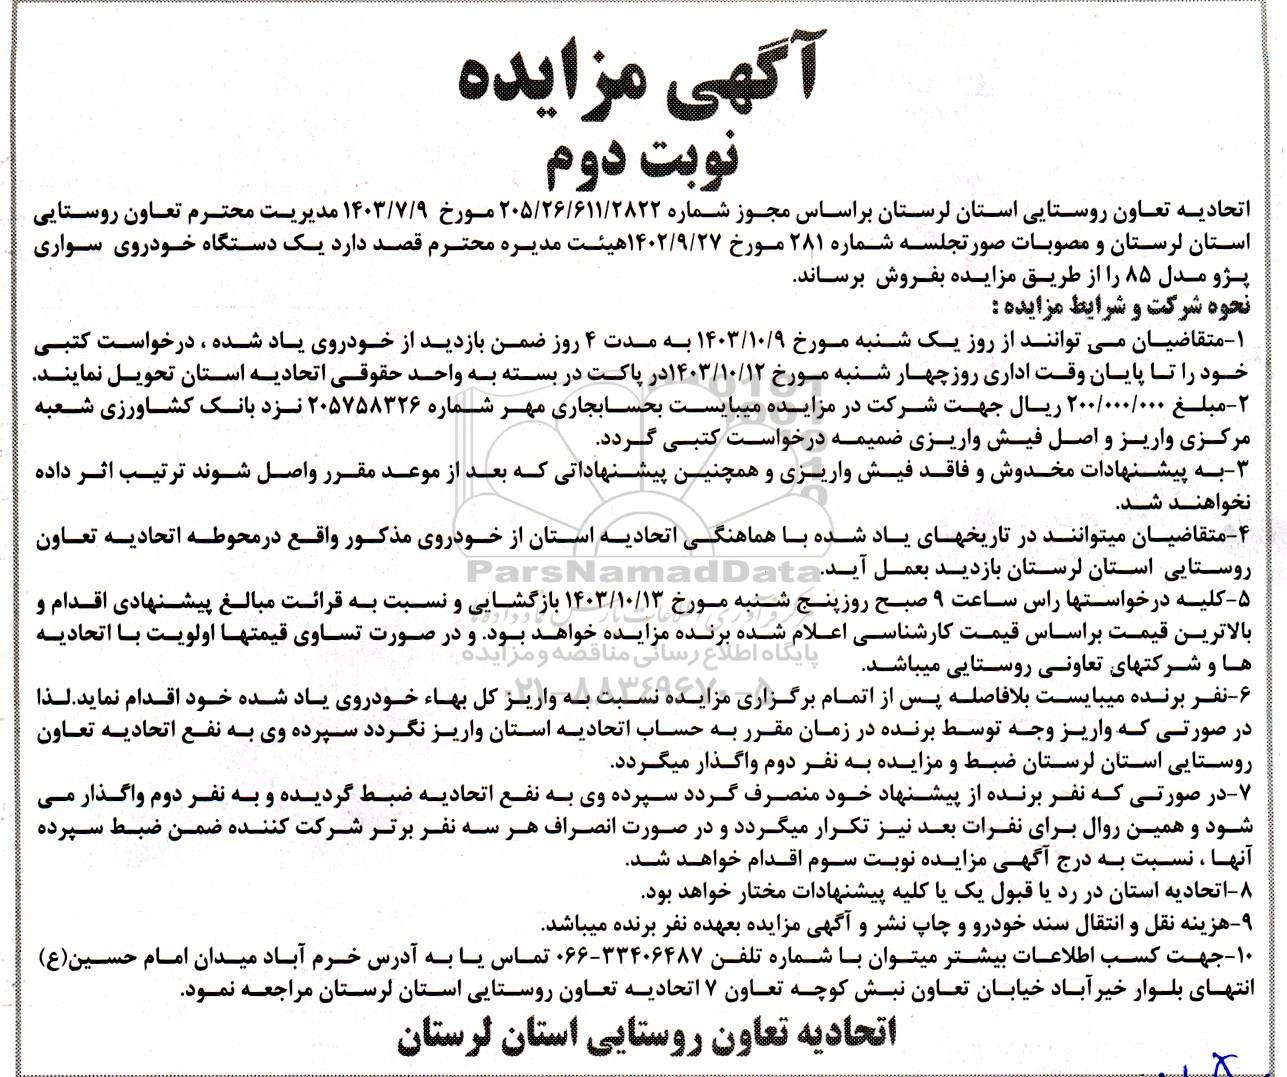 آگهی مزایده
نوبت دوم
اتحادیه تعاون روستایی استان لرستان براساس مجوز شماره ۲۰۵/۲۶/۶۱۱/۲۸۲۲ مورخ ۱۴۰۳/۷/۹ مدیریت محترم تعاون روستایی
استان لرستان و مصوبات صورتجلسه شماره ۲۸۱ مورخ ۱۴۰۲/۹/۲۷هیئت مدیره محترم قصد دارد یک دستگاه خودروی سواری
پژو مدل ۸۵ را از طریق مزایده بفروش برساند.
نحوه شرکت و شرایط مزایده :
۱-متقاضیان می توانند از روز یک شنبه مورخ ۱۴۰۳/۱۰/۹ به مدت ۴ روز ضمن بازدید از خودروی یاد شده ، درخواست کتبی
خود را تا پایان وقت اداری روزچهار شنبه مورخ ۱۴۰۳/۱۰/۱۲در پاکت در بسته به واحد حقوقی اتحادیه استان تحویل نمایند.
۲-مبلغ ۲۰۰/۰۰۰/۰۰۰ ریال جهت شرکت در مزایده میبایست بحسابجاری مهر شماره ۲۰۵۷۵۸۳۲۶ نزد بانک کشاورزی شعبه
مرکزی واریز و اصل فیش واریزی ضمیمه درخواست کتبی گردد.
۳-به پیشنهادات مخدوش و فاقد فیش واریزی و همچنین پیشنهاداتی که بعد از موعد مقرر واصل شوند ترتیب اثر داده
نخواهند شد.
۴-متقاضیان میتوانند در تاریخهای یاد شده با هماهنگی اتحادیه استان از خودروی مذکور واقع درمحوطه اتحادیه تعاون
روستایی استان لرستان بازدید بعمل آید.
ParsNamadData
۵-کلیه درخواستها راس ساعت ۹ صبح روزپنج شنبه مورخ ۱۴۰۳/۱۰/۱۳ بازگشایی و نسبت به قرائت مبالغ پیشنهادی اقدام و
بالاترین قیمت براساس قیمت کارشناسی اعلام شده برنده مزایده خواهد بود. و در صورت تساوی قیمتها اولویت با اتحادیه
پایگاه اطلاع رسانی مناقصه و مزایده
ها و شرکتهای تعاونی روستایی میباشد.
۰۲۱-۸۸۳۴۹۶۷۰-۵
۶-نفر برنده میبایست بلافاصله پس از اتمام برگزاری مزایده نسبت به واریز کل بهاء خودروی یاد شده خود اقدام نماید.لذا
در صورتی که واریز وجه توسط برنده در زمان مقرر به حساب اتحادیه استان واریز نگردد سپرده وی به نفع اتحادیه تعاون
روستایی استان لرستان ضبط و مزایده به نفر دوم واگذار میگردد.
۷-در صورتی که نفر برنده از پیشنهاد خود منصرف گردد سپرده وی به نفع اتحادیه ضبط گردیده و به نفر دوم واگذار می
شود و همین روال برای نفرات بعد نیز تکرار میگردد و در صورت انصراف هر سه نفر برتر شرکت کننده ضمن ضبط سپرده
آنها ، نسبت به درج آگهی مزایده نوبت سوم اقدام خواهد شد.
۸-اتحادیه استان در رد یا قبول یک یا کلیه پیشنهادات مختار خواهد بود.
۹-هزینه نقل و انتقال سند خودرو و چاپ نشر و آگهی مزایده بعهده نفر برنده میباشد.
۱۰-جهت کسب اطلاعات بیشتر میتوان با شماره تلفن ۳۳۴۰۶۴۸۷-۰۶۶ تماس یا به آدرس خرم آباد میدان امام حسین(ع)
انتهای بلوار خیرآباد خیابان تعاون نبش کوچه تعاون ۷ اتحادیه تعاون روستایی استان لرستان مراجعه نمود.
اتحادیه تعاون روستایی استان لرستان